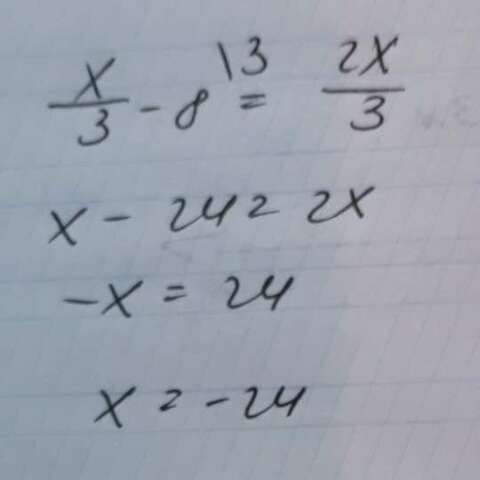 x/3 - 8 \3 = 2x/3
x - 24 = 2x
-x = 24
x = -24